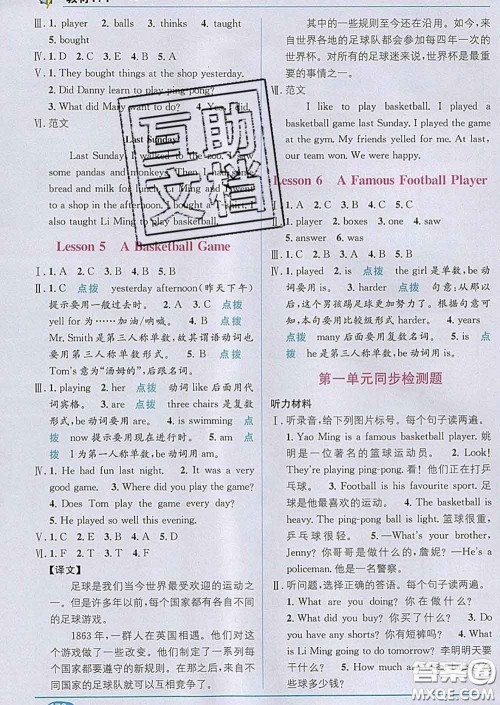 Ⅲ. 1. player 2. balls 3. thinks 4. taught
5. bought
Ⅴ. 1. They bought things at the shop yesterday.
2. Did Danny learn to play ping-pong?
3. What did Mary want to do? 4. Yes, I did.
Ⅵ. 范文
Last Sunday
Last Sunday, I walked to the zoo. I saw
some pandas and monkeys. Then I had
bread and milk for lunch. Li Ming and I went
to a shop in the afternoon. I bought a I
also taught Li Ming to play basketball.
Lesson 5 A Basketball Game
Ⅰ. 1. A 2. A 3. B 4. B 5. B
Ⅱ. 1. C 点拨 yesterday afternoon(昨天下午)
提示要用一般过去时。 2. A 3. C 点拨
yell for 为……加油/呐喊。 4. B 点拨
Mr. Smith 是第三人称单数,故其谓语动词也
要用第三人称单数形式。 5. B 点拨
Tom's 意为“汤姆的”,后跟名词。
Ⅲ. 1. playing 2. her 点拨 动词 like 后面用代
词宾格。 3. are 点拨 three chairs 是复
数形式,故 be 动词用 are。 4. is swimming
点拨 now 提示要用现在进行时。 5. am
点拨 I 为第一人称单数,be 动词用 am。
Ⅳ. 1. He had fun last night. 2. It was a very
good game. 3. What did you do yesterday?
4. Does Tom play the game every day?
5. He played so well this evening.
Ⅴ. 1. D 2. E 3. B 4. A 5. C
Ⅵ. 1. F 2. F 3. T 4. T
【译文】
足球是我们当今世界最受欢迎的运动之
一。但是许多年以前,每个国家都有各自不同
的足球游戏。
1863 年,一群人在英国相遇。他们对这
个游戏做了一些改变。他们制定了一系列每
个国家都要遵守的新规则。从那以后,来自不
同国家的足球队就可以互相竞争了。
其中的一些规则至今还在沿用。如今,来
自世界各地的足球队都会参加每四年一次的
世界杯。对所有的足球迷来说,世界杯是最重
要的事情之一。
Ⅶ. 范文
I like to play basketball. I played a
basketball game last Sunday. I played the
game at the gym. My friends yelled for me. At last,
our team won. We were happy.
Lesson 6 A Famous Football Player
Ⅰ. 1. C 2. A 3. B 4. A 5. B
Ⅲ. 1. player 2. boxes 3. one 4. saw
5. answer 6. was
Ⅳ. 1. played 2. is 点拨 the girl 是单数,be 动
词用 is。 3. harder 点拨 句意:从那以
后,这个男孩踢足球更加努力了。根据句意可
知,本句要用比较级形式 harder。 4. years
点拨 many 后面要用复数名词。 5. is
点拨 he 是第三人称单数,be 动词用 is。
第一单元同步检测题
听力材料
Ⅰ. 听录音,给下列图片标号。每个句子读两遍。
1. Yao Ming is a famous basketball player. 姚
明是一位著名的篮球运动员。 2. Look!
They're playing ping-pong. 看!他们正在打乒
乓球。 3. Football is his favourite sport. 足
球是他最喜欢的运动。 4. The boy is strong.
The ping-pong ball is light. 男孩很强壮。乒
乓球很轻。 5. —What's your brother,
Jenny? 你哥哥是做什么的,詹妮?—He's a
policeman. 他是一名警察。
Ⅱ. 听问题,选择正确的答语。每个句子读两遍。
1. What are you doing? 你在做什么?
2. What did you buy? 你买了什么? 3. Do
you have any shorts? 你有短裤吗? 4. What
is Li Ming going to do tomorrow? 李明明天要
干什么?
些球多少钱?
互助文档
答案圈
MXQE.COM